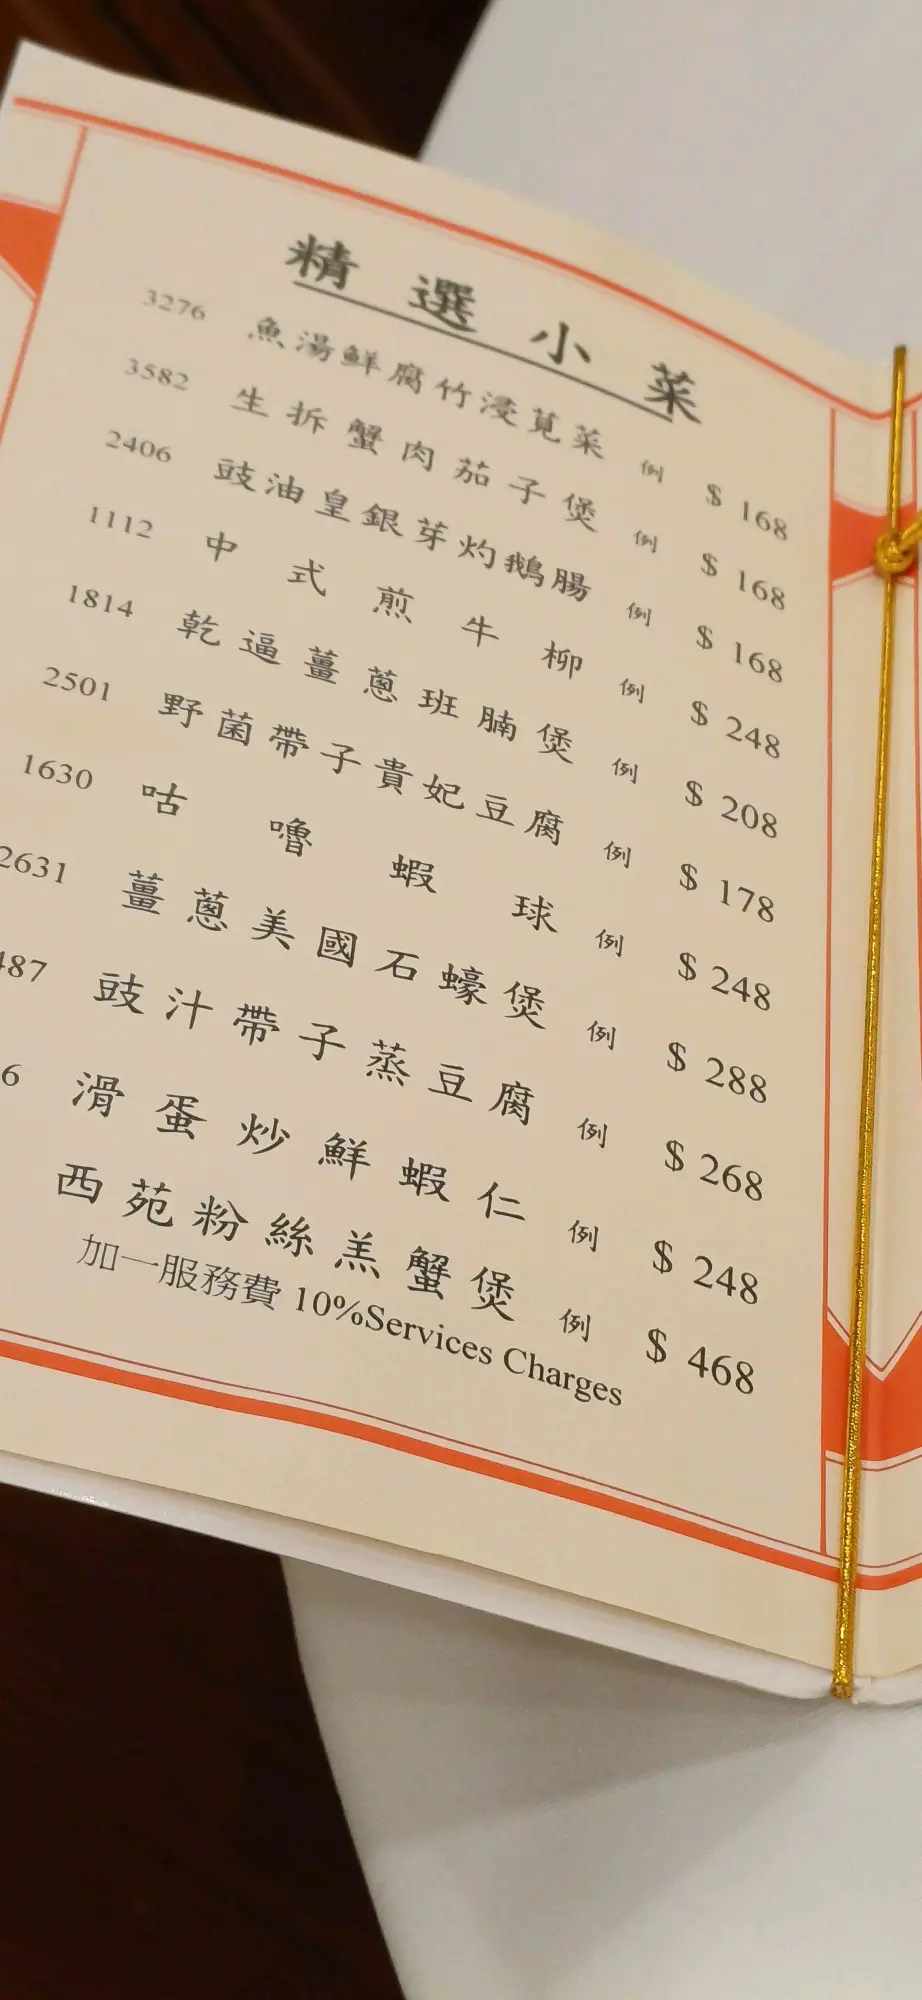 精選小菜
3276 魚湯鮮腐竹浸莧菜 例 $ 168
3582 生拆蟹肉茄子煲 例 $ 168
2406 豉油皇銀芽灼鵝腸 例 $ 168
1112 中式煎牛柳 例 $ 248
1814 乾逼薑蔥班腩煲 例 $ 208
2501 野菌帶子貴妃豆腐 例 $ 178
1630 咕嚕蝦球 例 $ 248
2631 薑蔥美國石蠔煲 例 $ 288
487 豉汁帶子蒸豆腐 例 $ 268
6 滑蛋炒鮮蝦仁 例 $ 248
西苑粉絲羔蟹煲 例 $ 468
加一服務費 10%Services Charges